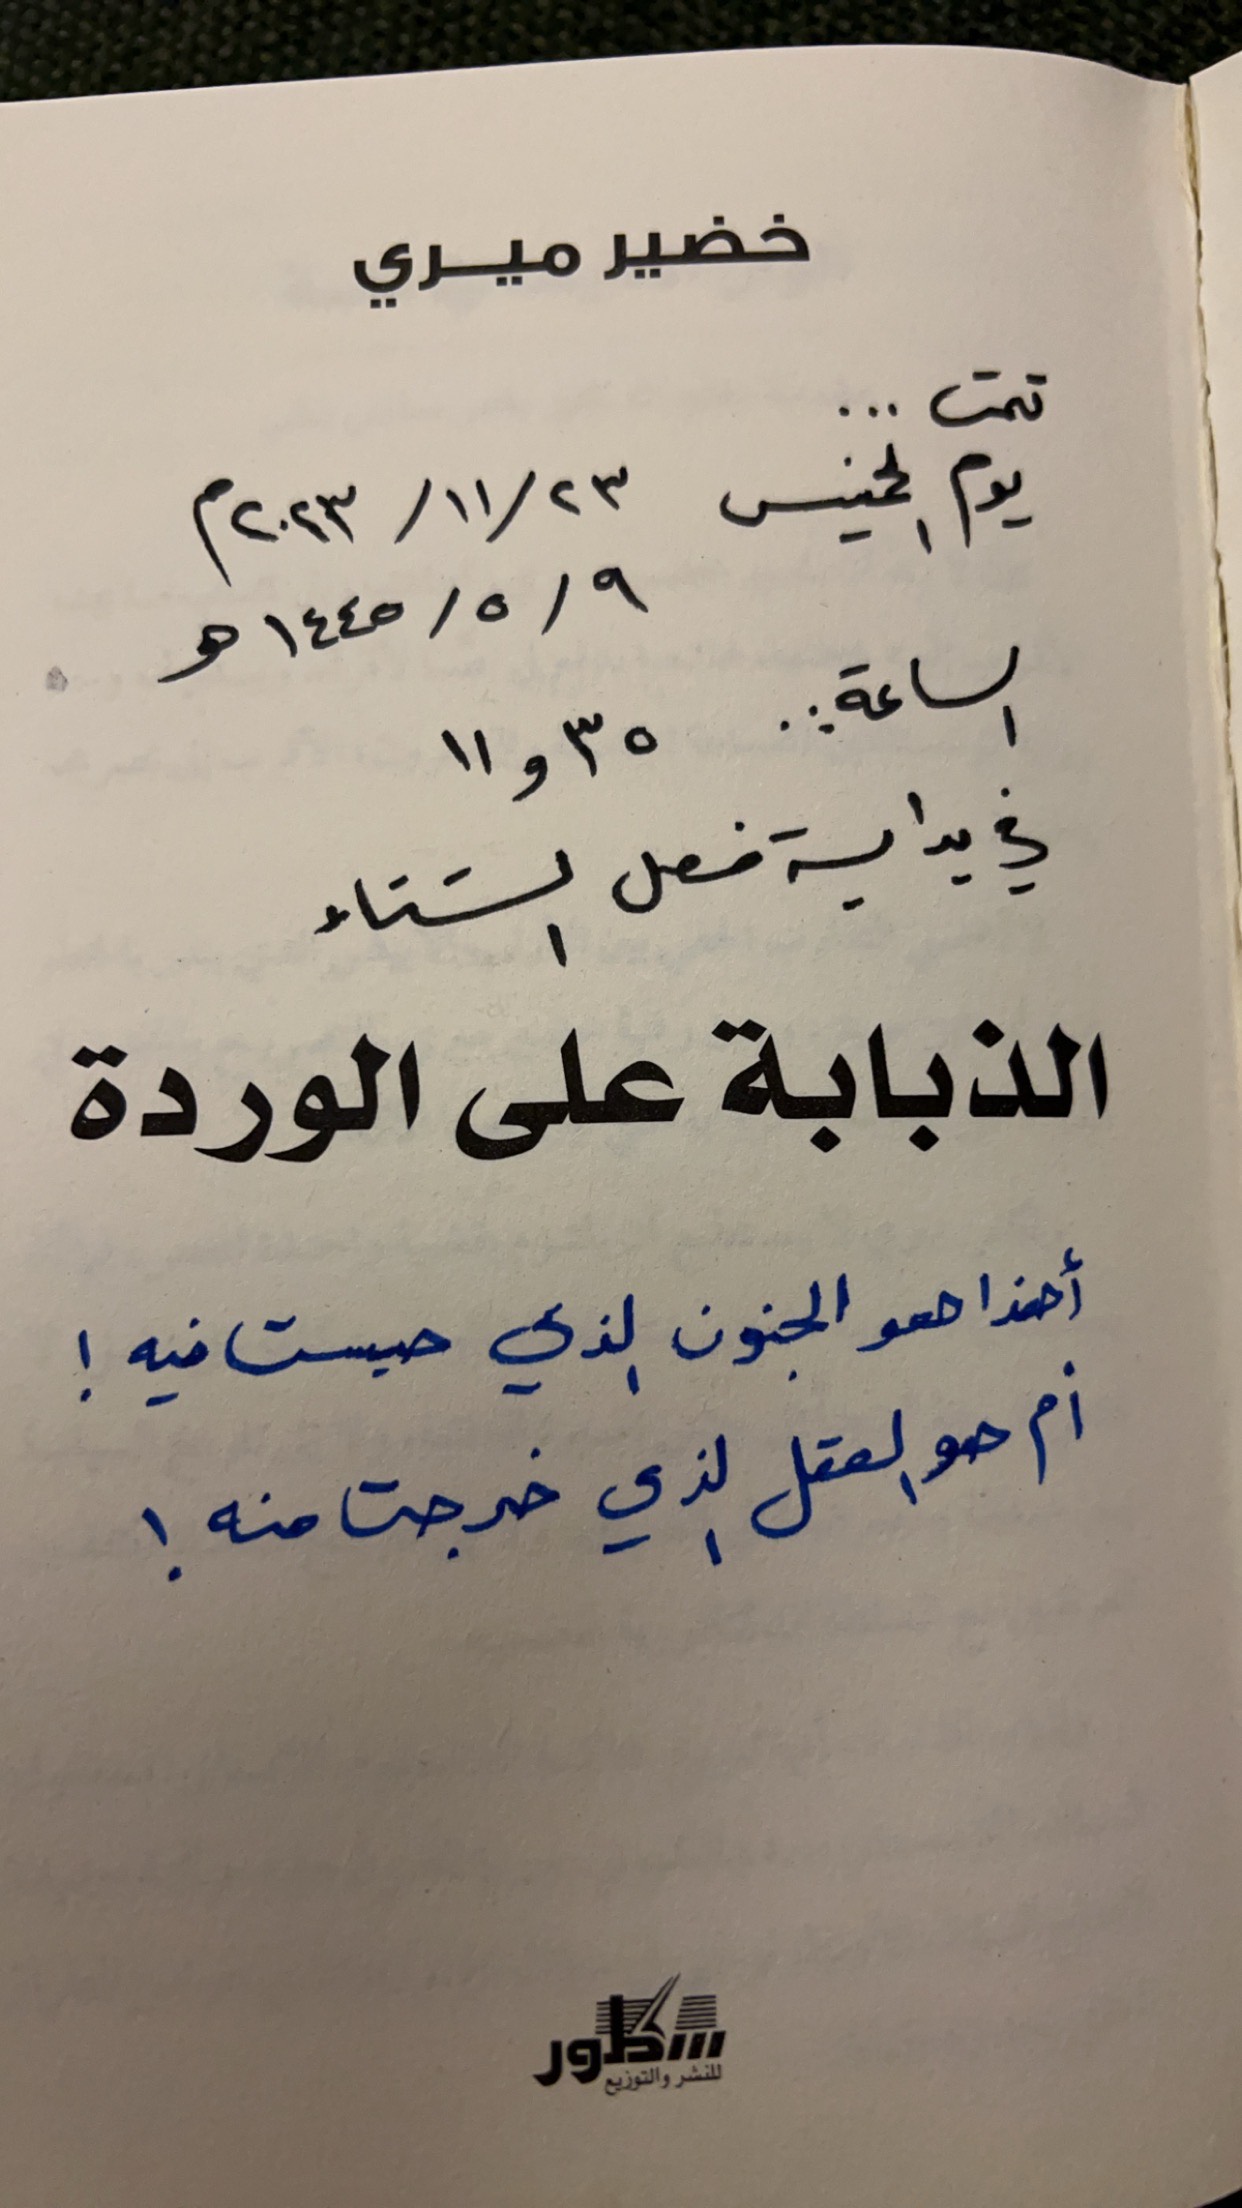 خضير ميري
تمت ...
يوم الخميس ٢٣/ ١١/ ٢٠٢٣م
٩/ ٥/ ١٤٤٥هـ
الساعة :.. ٣٥ و ١١
في بداية فصل الشتاء
الذبابة على الوردة
أهذا هو الجنون الذي حبست فيه !
أم هو العقل الذي خرجت منه !
سطور
للنشر والتوزيع